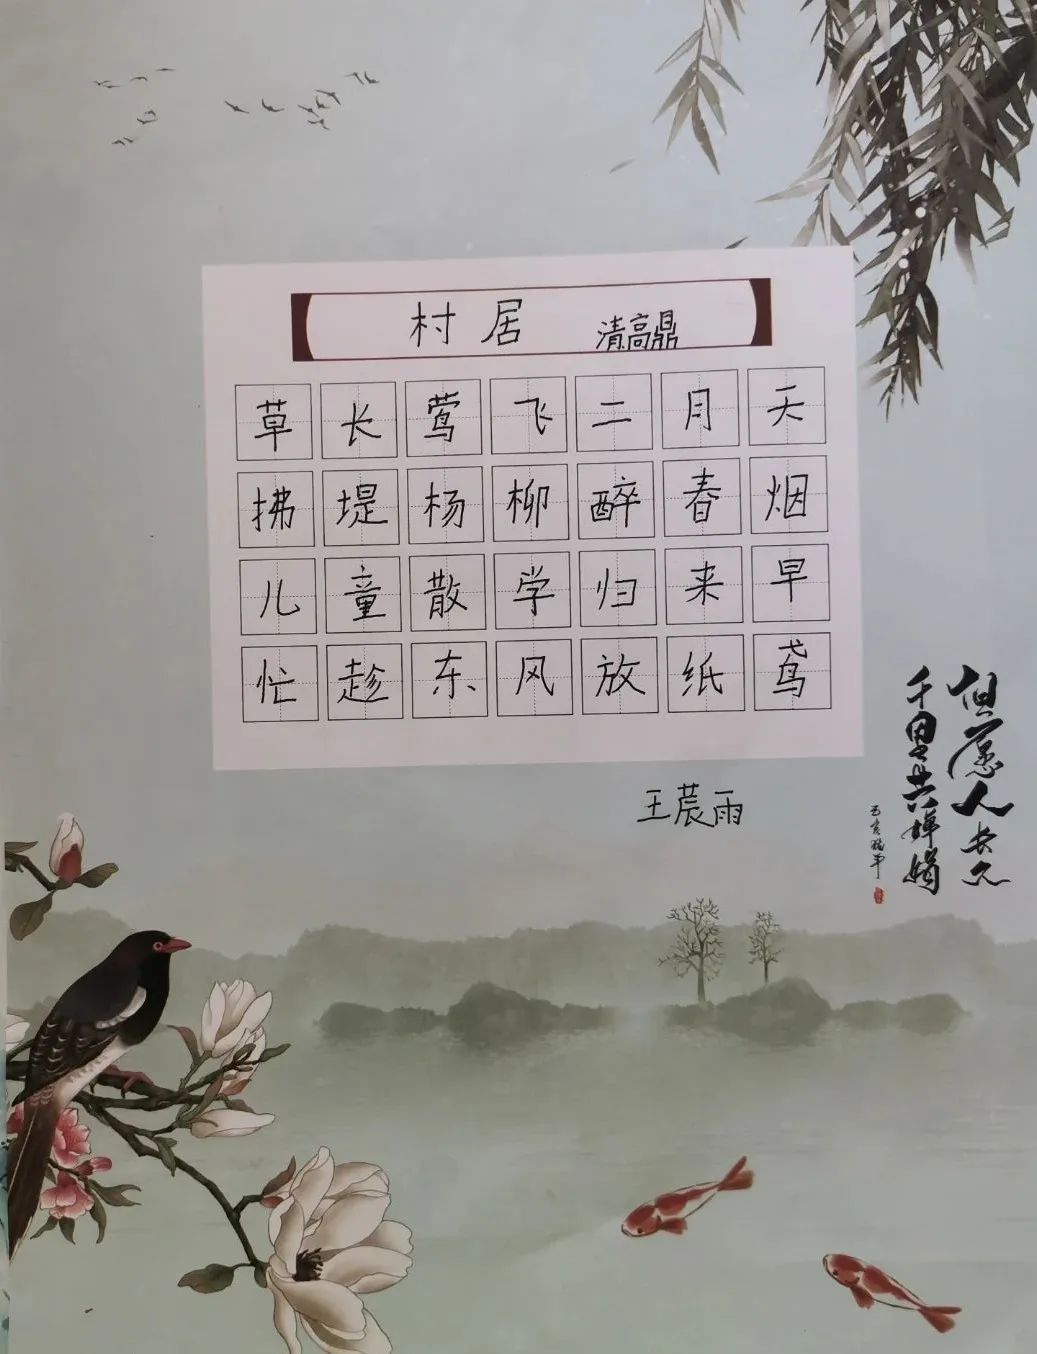 村居 清高鼎
草长莺飞二月天
拂堤杨柳醉春烟
儿童散学归来早
忙趁东风放纸鸢
王晨雨
但愿人长久
千里共婵娟